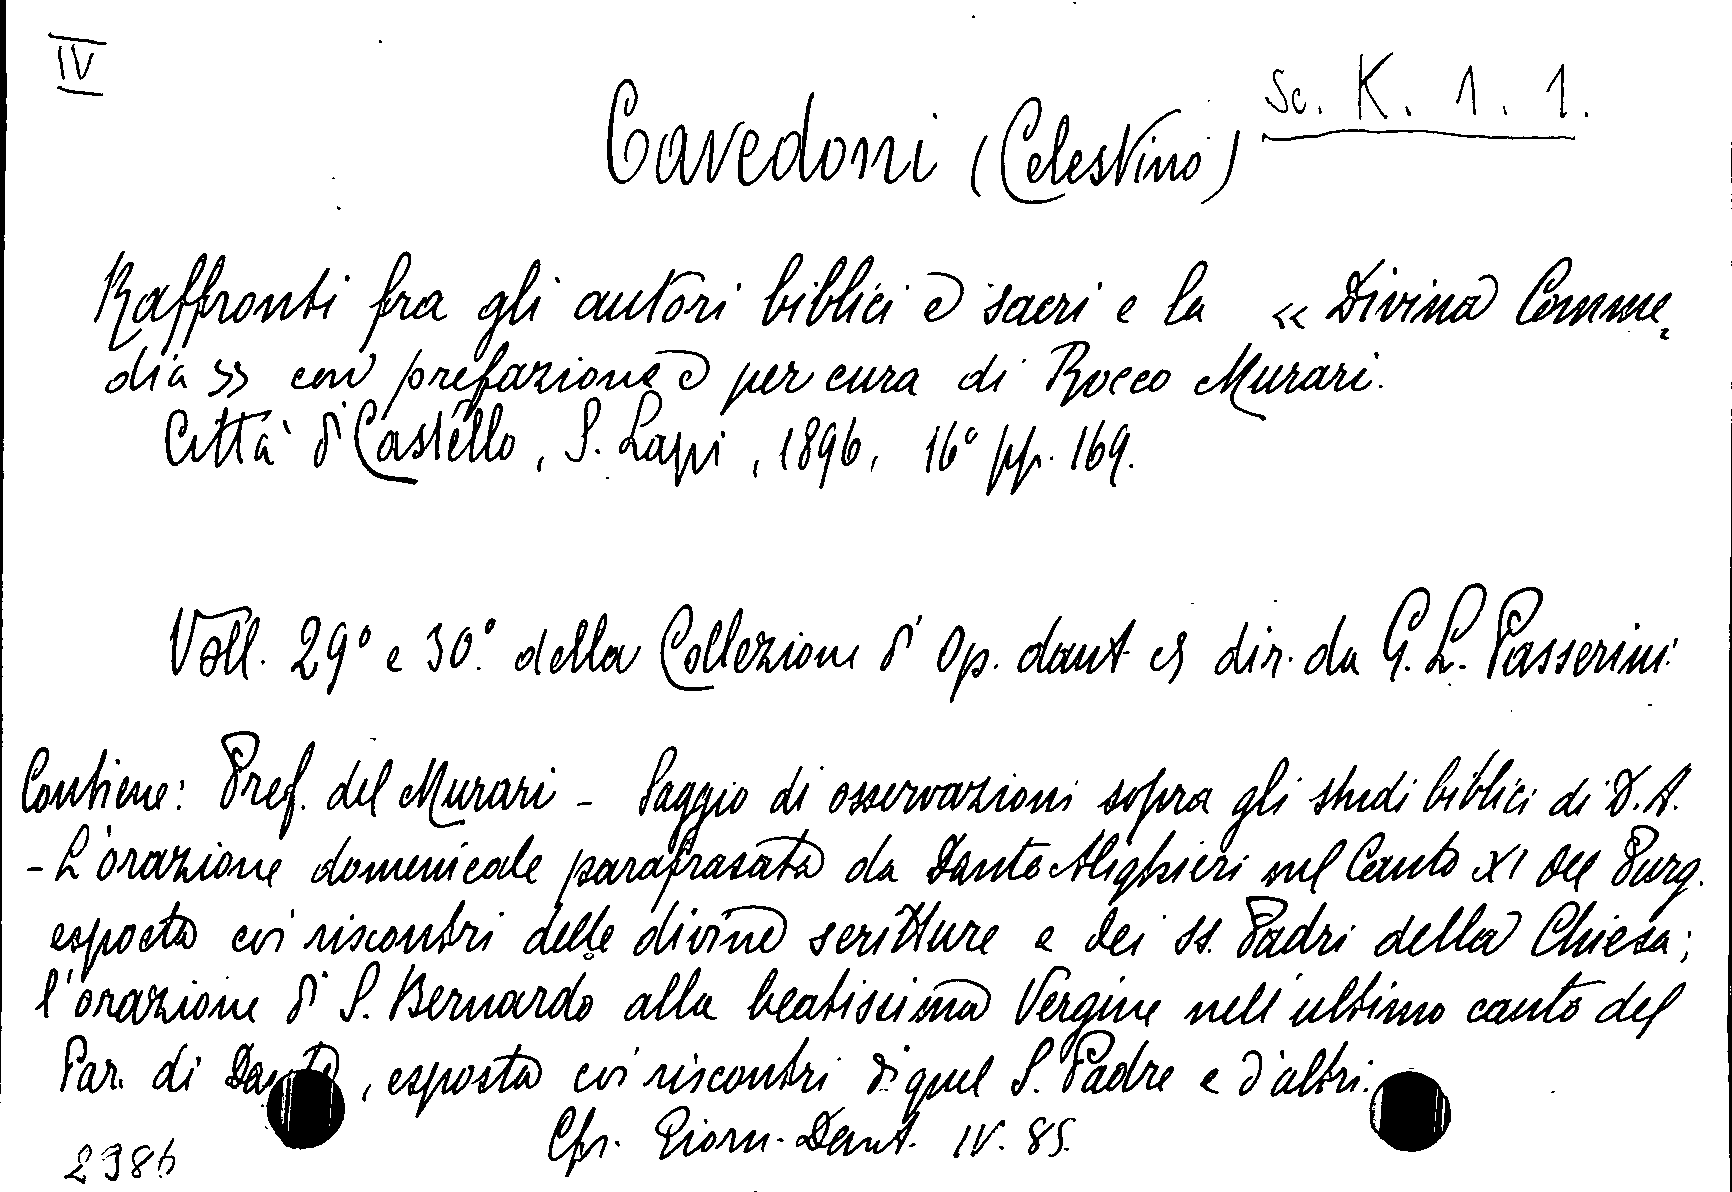 IV
Sc. K. 1. 1.
Cavedoni (Celestino)
Raffronti fra gli autori biblici e sacri e la « Divina Comme-
dia » con prefazione e per cura di Rocco Murari.
Città di Castello, S. Lapi, 1896, 16° pp. 169.
Voll. 29° e 30° della Collezione di Op. dant. dir. da G. L. Passerini
Contiene: Pref. del Murari - Saggio di osservazioni sopra gli studi biblici di D. A.
- L'orazione domenicale parafrasata da Dante Alighieri nel Canto XI del Purg.
esposta coi riscontri delle divine scritture e dei SS. Padri della Chiesa;
l'orazione di S. Bernardo alla beatissima Vergine nell'ultimo canto del
Par. di Dante, esposta coi riscontri di quel S. Padre e d'altri.
Cfr. Giorn. Dant. IV. 85.
2986